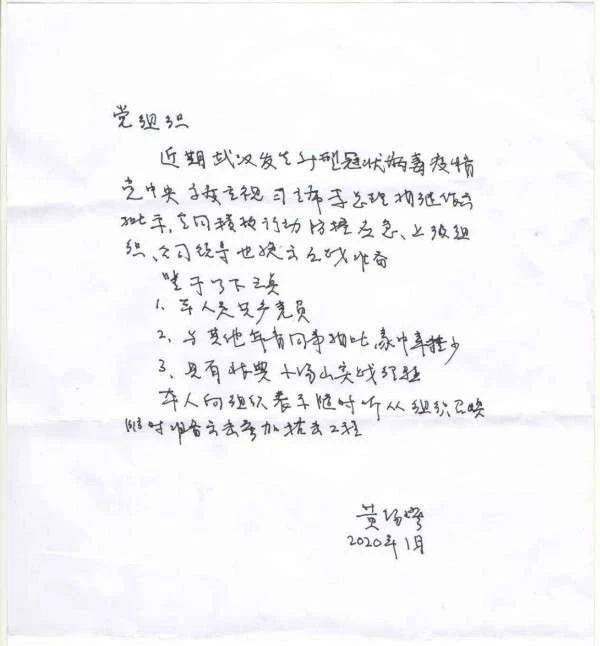 党组织
近期武汉发生新型冠状病毒疫情
党中央高度重视 习主席 李总理相继作出
批示,全国积极行动 防控应急、上级组
织、公司领导也提出应战准备
鉴于以下三点
1. 本人是共产党员
2. 与其他年青同事相比,家中牵挂少
3. 具有 小汤山实战经验
本人向组织表示随时听从组织召唤
随时准备出击参加抗击工程
黄
2020年1月